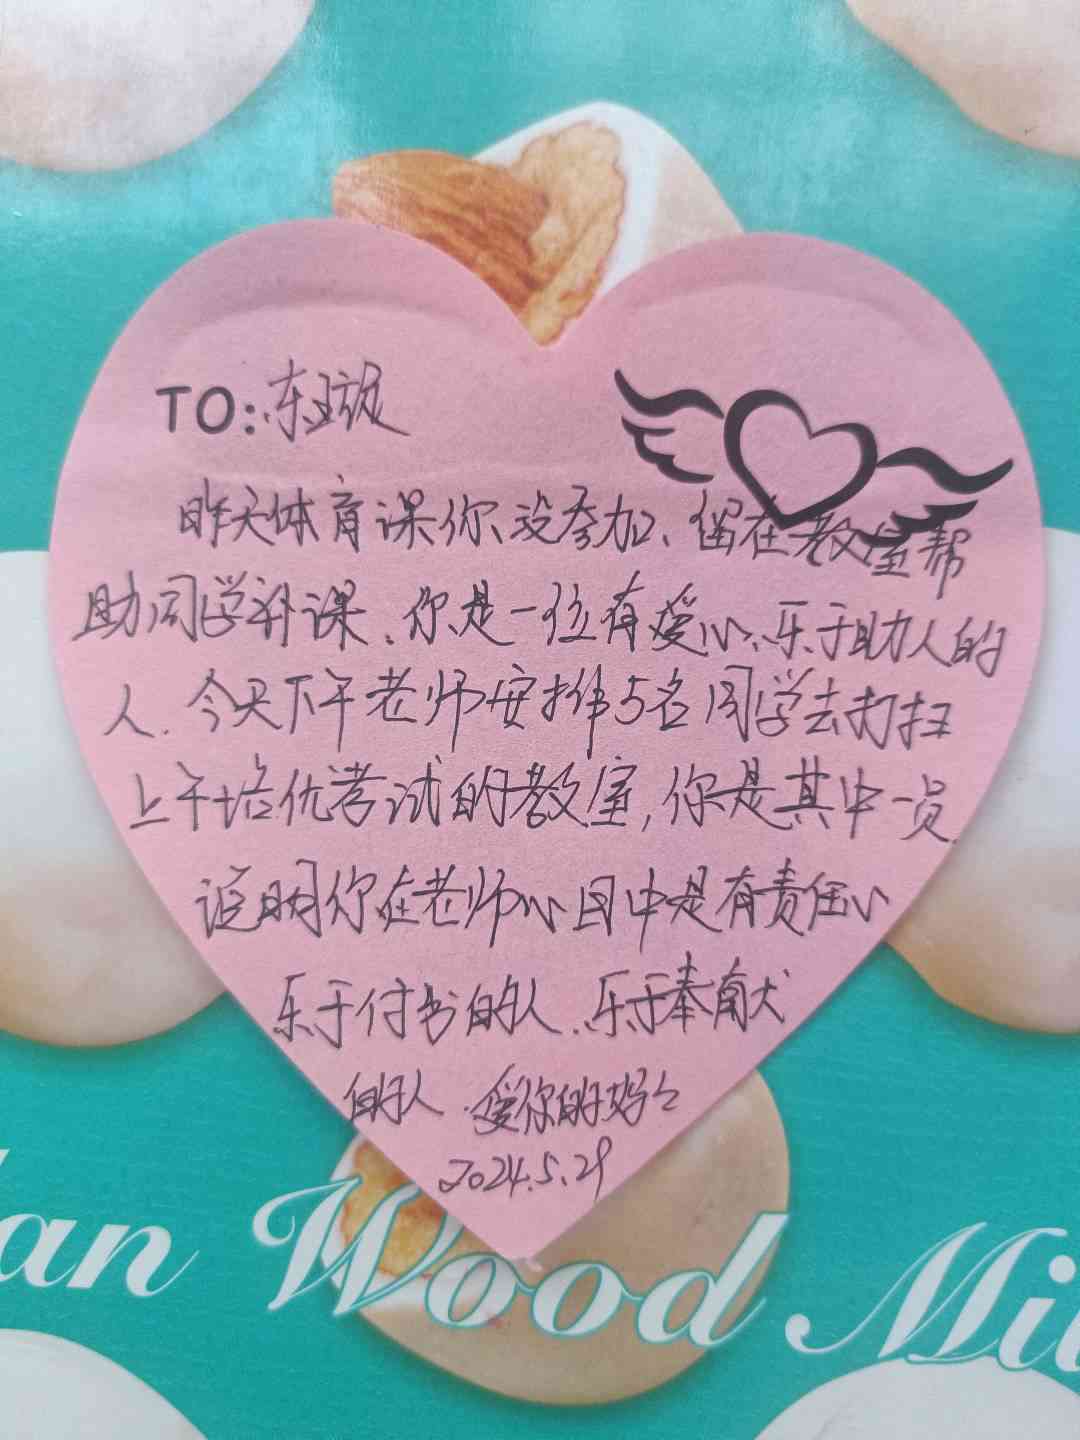 TO:东璇
昨天体育课你没参加、留在教室帮
助同学补课、你是一位有爱心、乐于助人的
人.今天下午老师安排5名同学去打扫
上午培优考试的教室,你是其中一员.
说明你在老师心目中是有责任心
乐于付出的人、乐于奉献
的人.爱你的妈々
2024.5.29
an Wood Mi